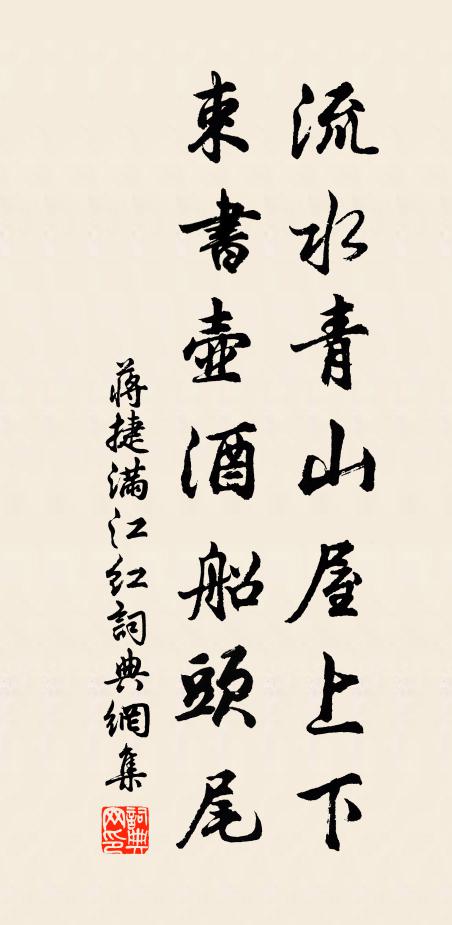 流水青山屋上下
束書壺酒船頭尾
蔣捷滿江紅詞典網集
詞典网印